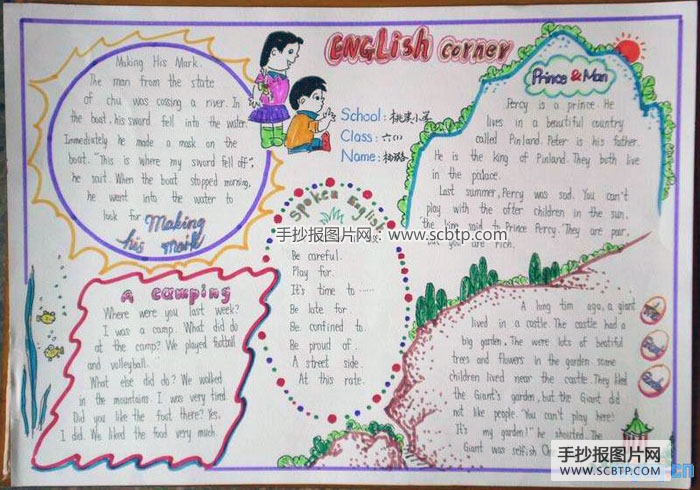 ENGLish corner
School: 桃溪小学
Class: 六(1)
Name:
Making His Mark.
The man from the state
of chu was cossing a river. In
the boat, his sword fell into the water.
Immediately he made a mask on the
boat. "This is where my sword fell off",
he sait. When the boat stopped morning,
he went into the water to
look for
Making
his mark
Prince & Man
Percy is a prince. He
lives in a beautiful country
called Pinland. Peter is his father.
He is the king of Pinland. They both live
in the palace.
Last summer, Percy was sad. You can't
play with the ofter children in the sun.
the king said to Prince Percy. They are poar,
but you are rich.
Spoken English
手抄报图片网：www.scbtp.com
Be careful.
Play for.
It's time to ······
Be late for
Be confined to
Be proud of.
A street side.
At this rate.
a camping
Where were you last week?
I was a camp. What did do
at the camp? We played football
and volleyball.
What else did do? We walked
in the mountains. I was very tired.
Did you like the foot there? Yes,
I did. We liked the food very much.
A long tim ago, a giant
lived in a castle. The castle had a
big garden. The were lots of beatiful
trees and flowers in the garden. some
children lived near the castle. They liked
the Giant's garden, but the Giant did
not like people. "You can't play here!
It's my garden!" he shouted. The
Giant was selfish
手抄报图片网
WWW.SCBTP.COM